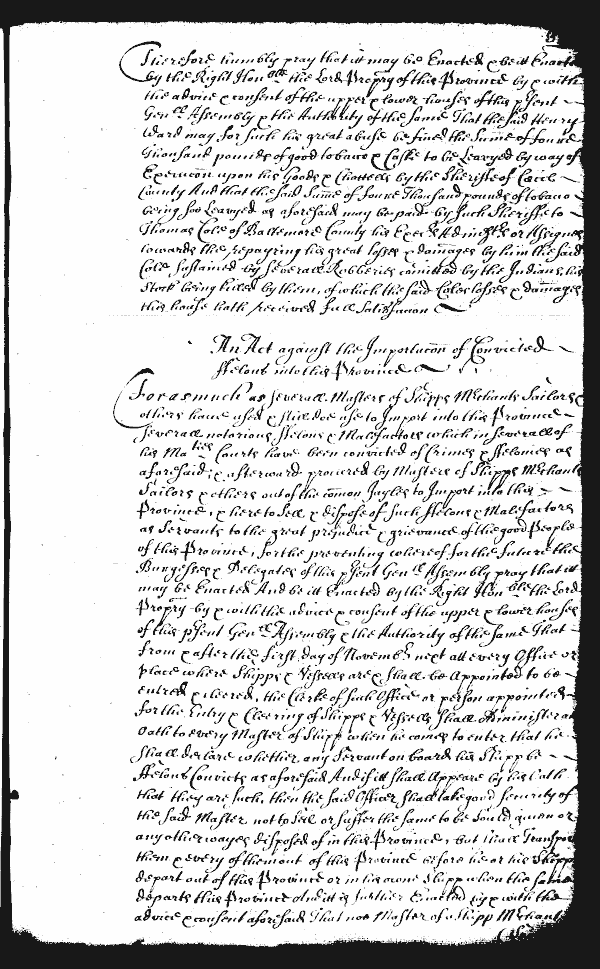 Therefore humbly pray that itt may be Enacted & be itt Enacted
by the Right Honoble the Lord Propry of this Province by & with
the advice & consent of the upper & lower houses of this psent
Genll Assembly & the Authority of the same That the said Henry
Ward may for such his great abuse be fined the Sume of foure
Thousand pounds of good tobacco & Caske to be Leavyed by way of
Execucon upon his Goods & Chattells by the Sheriffe of Cecil
County And that the said Sume of foure Thousand pounds of tobacco
being soe Leavyed as aforesaid may be paid by such Sheriffe to
Thomas Cole of Baltemore County his Execrs Admstrs or Assignes
towards the repayring his great losses & damages by him the said
Cole sustained by severall Robberies comitted by the Indians, his
Stock being killed by them, of which the said Coles losses & damages
this house hath received full Satisfaccon
An Act against the Importacon of Convicted
ffelons into this Province
Forasmuch as severall Masters of Shipps Mrchants Sailors &
others have used & still doe use to Import into this Province
severall notorious ffelons & Malefactors which in severall of
his Maties Courts have been convicted of Crimes & ffelonies as
aforesaid; & afterward procured by Masters of Shipps Mrchants
Sailors & others out of the comon Jayles to Import into this
Province, & here to sell & dispose of such ffelons & Malefactors
as Servants to the great prejudice & grievance of the good People
of this Province, for the preventing whereof for the future the
Burgesses & Delegates of this psent Genll Assembly pray that itt
may be Enacted And be itt Enacted by the Right Honoble the Lord
Propry by & with the advice & consent of the upper & lower houses
of this psent Genll Assembly & the Authority of the same That
from & after the first day of Novembr next att every Office or
place where Shipps & Vessells are & shall be Appointed to be
entred & cleered, the Clerke of such Office or person appointed
for the Entry & Cleering of Shipps & Vessells shall Administer an
Oath to every Master of Shipp when he comes to enter that he
shall declare whether any Servant on board his Shipp be
ffelons Convicts as aforesaid And if itt shall Appeare by his Oath
that they are such, then the said Officer shall take good security of
the said Master not to sell or suffer the same to be sould given or
any other wayes disposed of in this Province, but shall Transport
them & every of them out of this Province before he or his Shipp
depart out of this Province or in his owne Shipp when the same
departs this Province And itt is further Enacted by & with the
advice & consent aforesaid That noe Master of a Shipp Mrchant